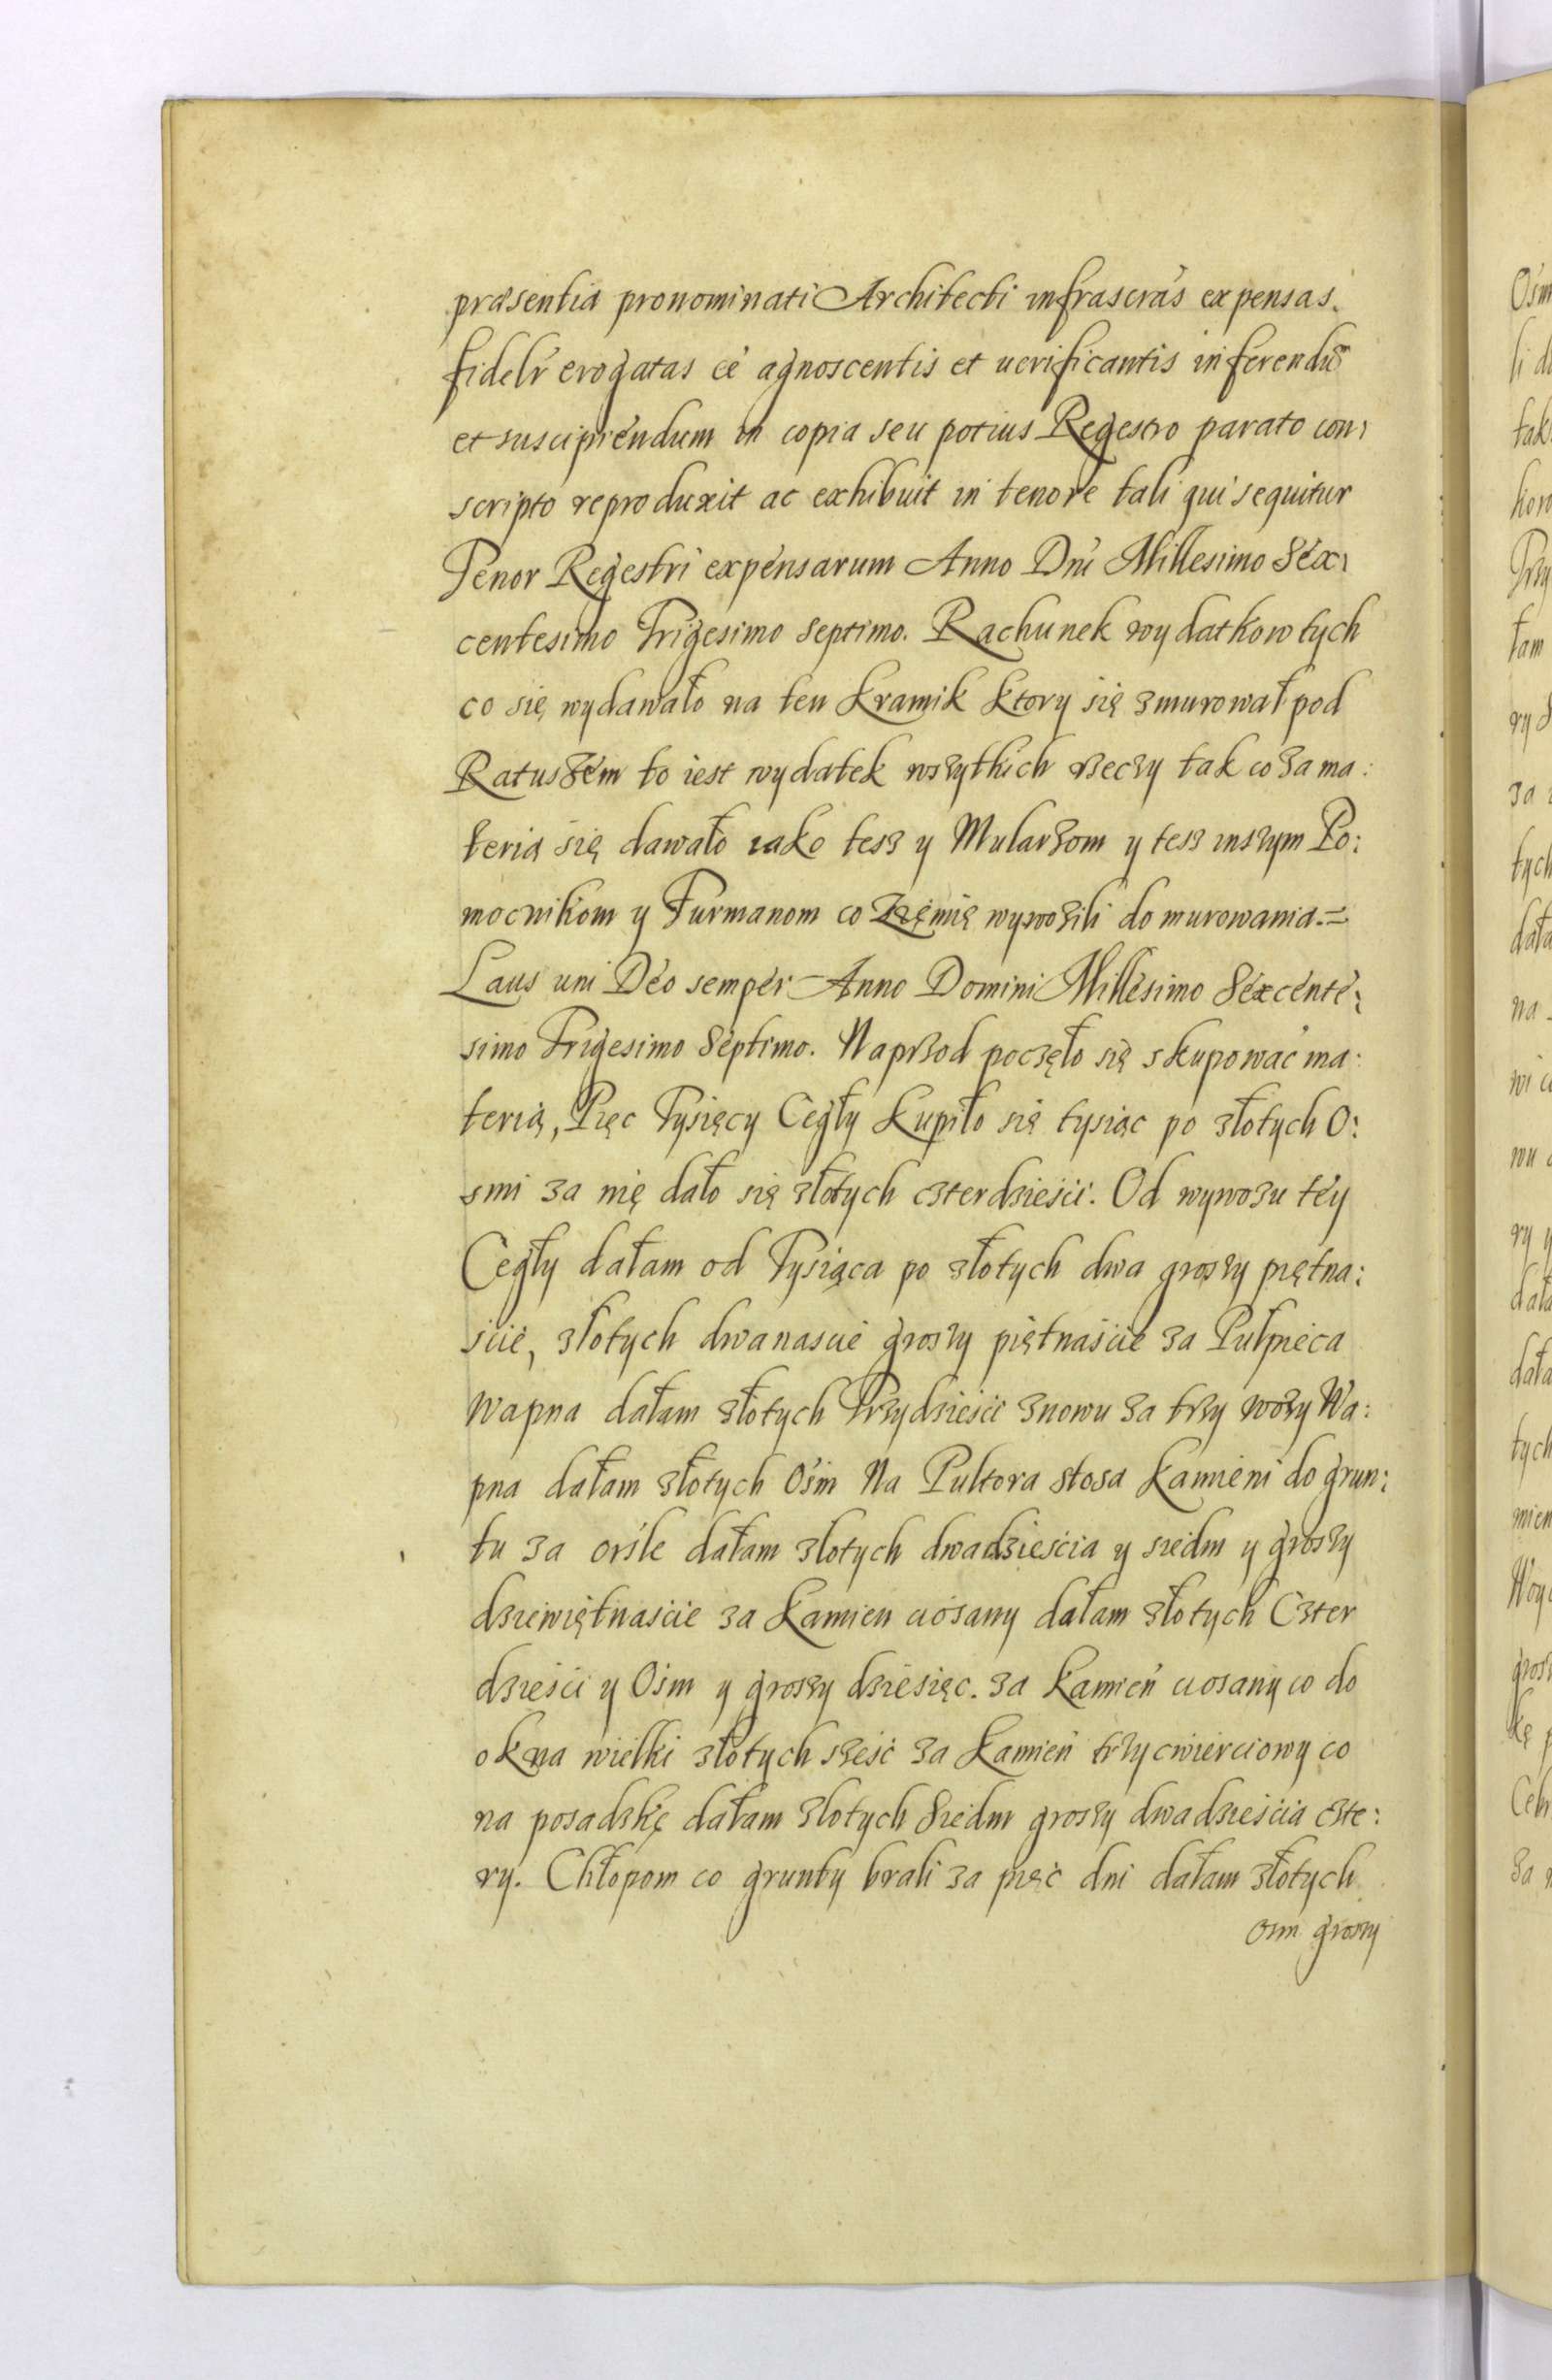 præsentia pronominati Architecti infrascrãs expensas
fidelr̃ erogatas eẽ agnoscentis et uerificantis inferendũ
et suscipiendum in copia seu potius Regestro parato con:
scripto reproduxit ac exhibuit in tenore tali qui sequitur
Tenor Regestri expensarum Anno Dni Millesimo Sex:
centesimo Trigesimo Septimo. Rachunek wydatkow tych
co się wydawało na ten Kramik Ktory się zmurował pod
Ratuszem to iest wydatek wszytkich rzeczy tak co za ma:
terią się dawało iako tesz y Mularzom y tesz inszym Po:
mocnikom y Furmanom co Zięmię wywozili do murowania.=
Laus uni Deo semper Anno Domini Millesimo Sexcente:
simo Trigesimo Septimo. Naprzod poczęło się skupować ma:
terią, Pięc Tysięcy Cegły Kupiło się tysiąc po złotych O:
smi za nię dało się złotych czterdzieści. Od wywozu tey
Cegły dałam od Tysiąca po złotych dwa groszy piętna:
ście, złotych dwanascie groszy piętnaście za Pułpieca
Wapna dałam złotych Trzydzieści znowu za trzy wozy Wa:
pna dałam złotych Ośm Na Pultora stosa Kamieni do grun:
tu za orśle dałam zlotych dwadzieścia y siedm y groszy
dziewiętnascie za Kamien ciosany dałam złotych Czter
dzieści y Ośm y groszy dziesięc. za Kamień ciosany co do
okna wielki złotych sześć za Kamień trzycwierciowy co
na posadzkę dałam zlotych Siedm groszy dwadzieścia czte:
ry. Chłopom co grunty brali za pięć dni dałam złotych
Osm groszy